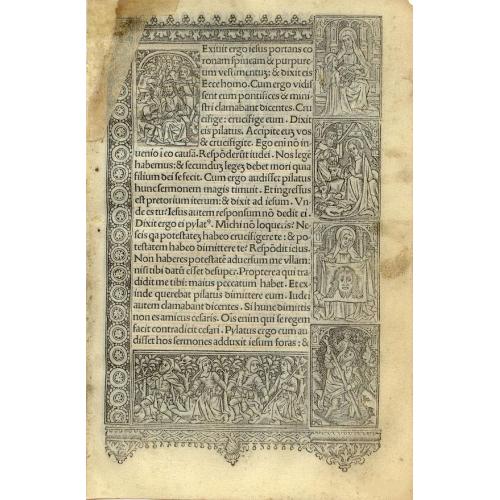 Exiuit ergo iesus portans co
ronam spineam & purpure
um vestimentuz: & dixit eis
Ecce homo. Cum ergo vidis
sent eum pontifices & mini
stri clamabant dicentes. Cru
cifige: crucifige eum. Dixit
eis pilatus. Accipite euz vos
& crucifigite. Ego eni nō in
uenio i eo causā. Respōderūt iudei. Nos legē
habemus: & secunduz legez debet mori quia
filium dei se fecit. Cum ergo audisset pilatus
hunc sermonem magis timuit. Et ingressus
est pretorium iterum: & dixit ad iesum. Vn-
de es tu? Iesus autem responsum nō dedit ei.
Dixit ergo ei pylatꝰ. Michi nō loqueris? Ne
scis qa potestatez habeo crucifigere te: & po
testatem habeo dimittere te? Respōdit iesus.
Non haberes potestatē aduersum me vllam:
nisi tibi datū esset desuper. Propterea qui tra
didit me tibi: maius peccatum habet. Et ex
inde querebat pilatus dimittere eum. Iudei
autem clamabant dicentes. Si hunc dimittis
non es amicus cesaris. Ois enim qui se regem
facit contradicit cesari. Pylatus ergo cum au
disset hos sermones adduxit iesum foras: &